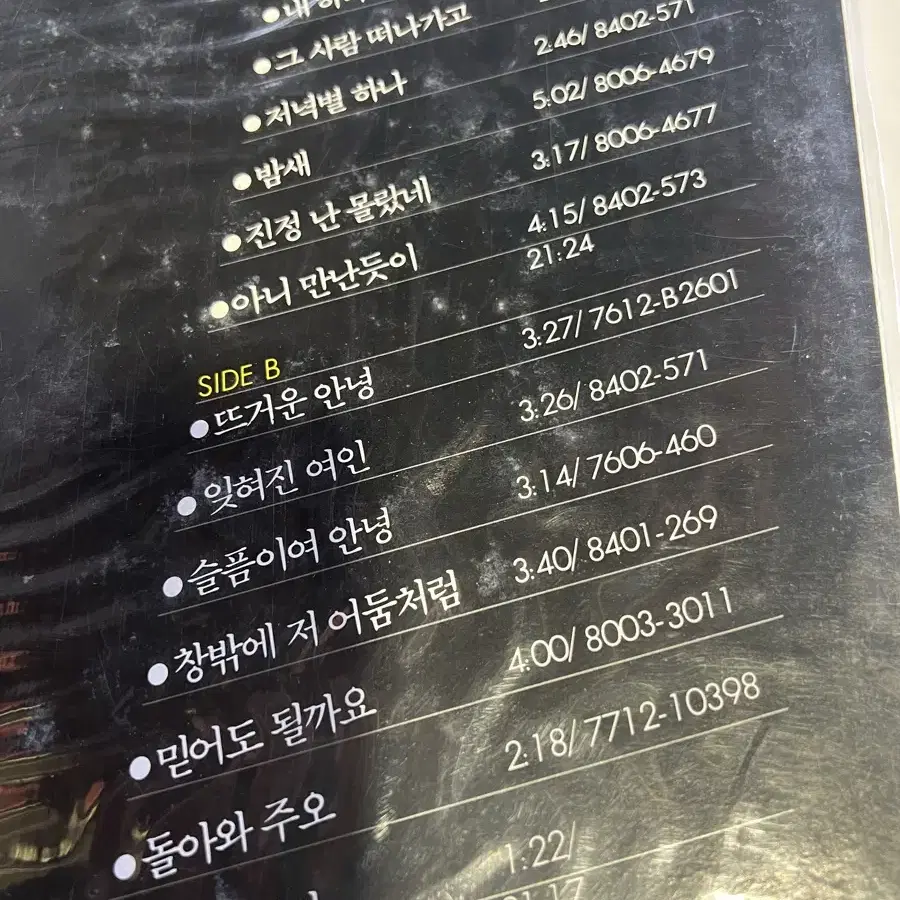 그 사람 떠나가고
저녁별 하나 2:46/ 8402-571
밤새 5:02/ 8006-4679
진정 난 몰랐네 3:17/ 8006-4677
아니 만난듯이 4:15/ 8402-573
21:24
SIDE B
뜨거운 안녕 3:27/ 7612-B2601
잊혀진 여인 3:26/ 8402-571
슬픔이여 안녕 3:14/ 7606-460
창밖에 저 어둠처럼 3:40/ 8401-269
믿어도 될까요 4:00/ 8003-3011
돌아와 주오 2:18/ 7712-10398
1:22/